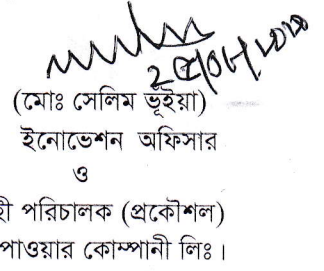 (মোঃ সেলিম ভূইয়া)
ইনোভেশন অফিসার
ও
হী পরিচালক (প্রকৌশল)
পাওয়ার কোম্পানী লিঃ।